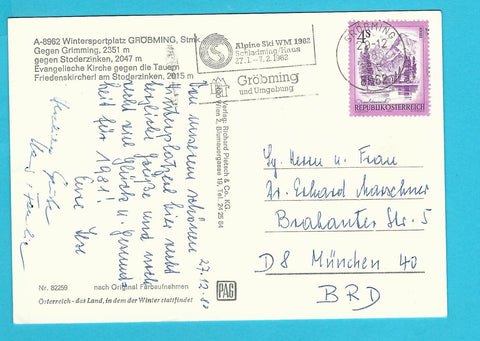 A-8962 Wintersportplatz GRÖBMING, Stmk.
Gegen Grimming, 2351 m
gegen Stoderzinken, 2047 m
Evangelische Kirche gegen die Tauern
Friedenskircherl am Stoderzinken, 2015 m
Alpine Ski WM 1982
Schladming/Haus
27.1. - 7.2.1982
Gröbming
und Umgebung
GRÖBMING
8962
4S
REPUBLIK ÖSTERREICH
27.12.80
Von unserem schönen
hier recht
herzliche Grüße und noch
recht viel Glück u. Gesund-
heit für 1981!
Eure
Verlag Richard Pietsch & Co. KG.
1200 Wien 2, Blumauergasse 19, Tel. 24 25 84
Sg. Herrn u. Frau
Dr. Erhard Marschner
Brabanter Str. 5
D 8 München 40
BRD
Nr. 82259
nach Original Farbaufnahmen
PAG
Österreich - das Land, in dem der Winter stattfindet!